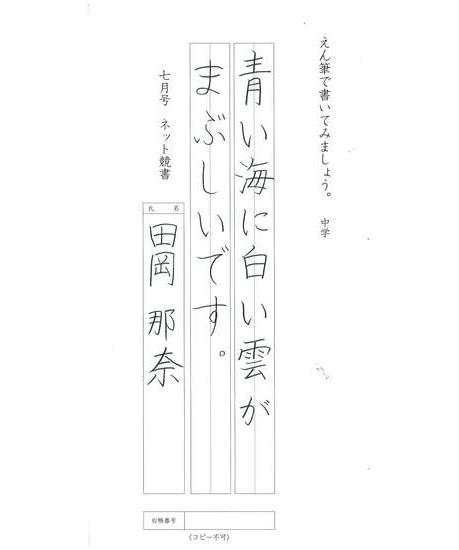 えん筆で書いてみましょう。 中学
青い海に白い雲が
まぶしいです。
七月号 ネット競書
氏 名
田岡 那奈
台帳番号
〈コピー不可〉